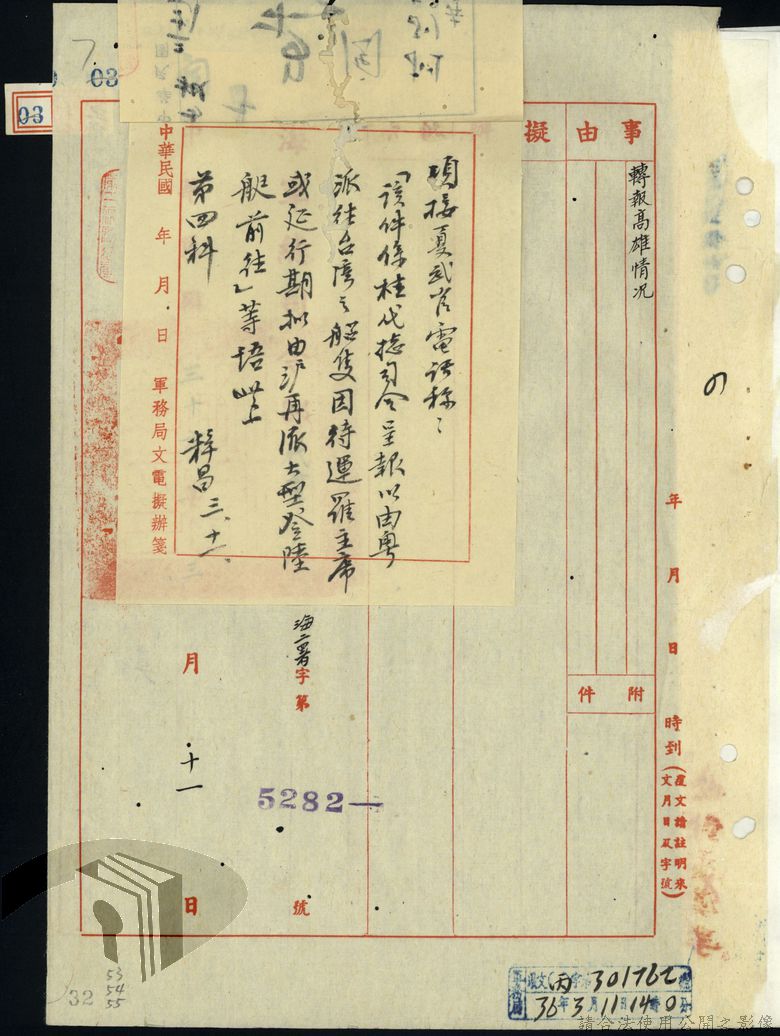 事由擬
轉報高雄情況
附件
年月日時到
(覆文請註明來文月日及字號)
頃接夏武官電話称：
「該件係桂代總司令呈報以由粵
派往台灣之船隻因待運羅主席
或延行期擬由沪再派大型登陸
艇前往」等語 此上
第四科
三、十一、
中華民國 年 月 日 軍務局文電擬辦箋
海署字第
5282
號
月
十一
日
03
03
32
53
54
55
301762
36年3月11日14時0分
請合法使用公開之影像